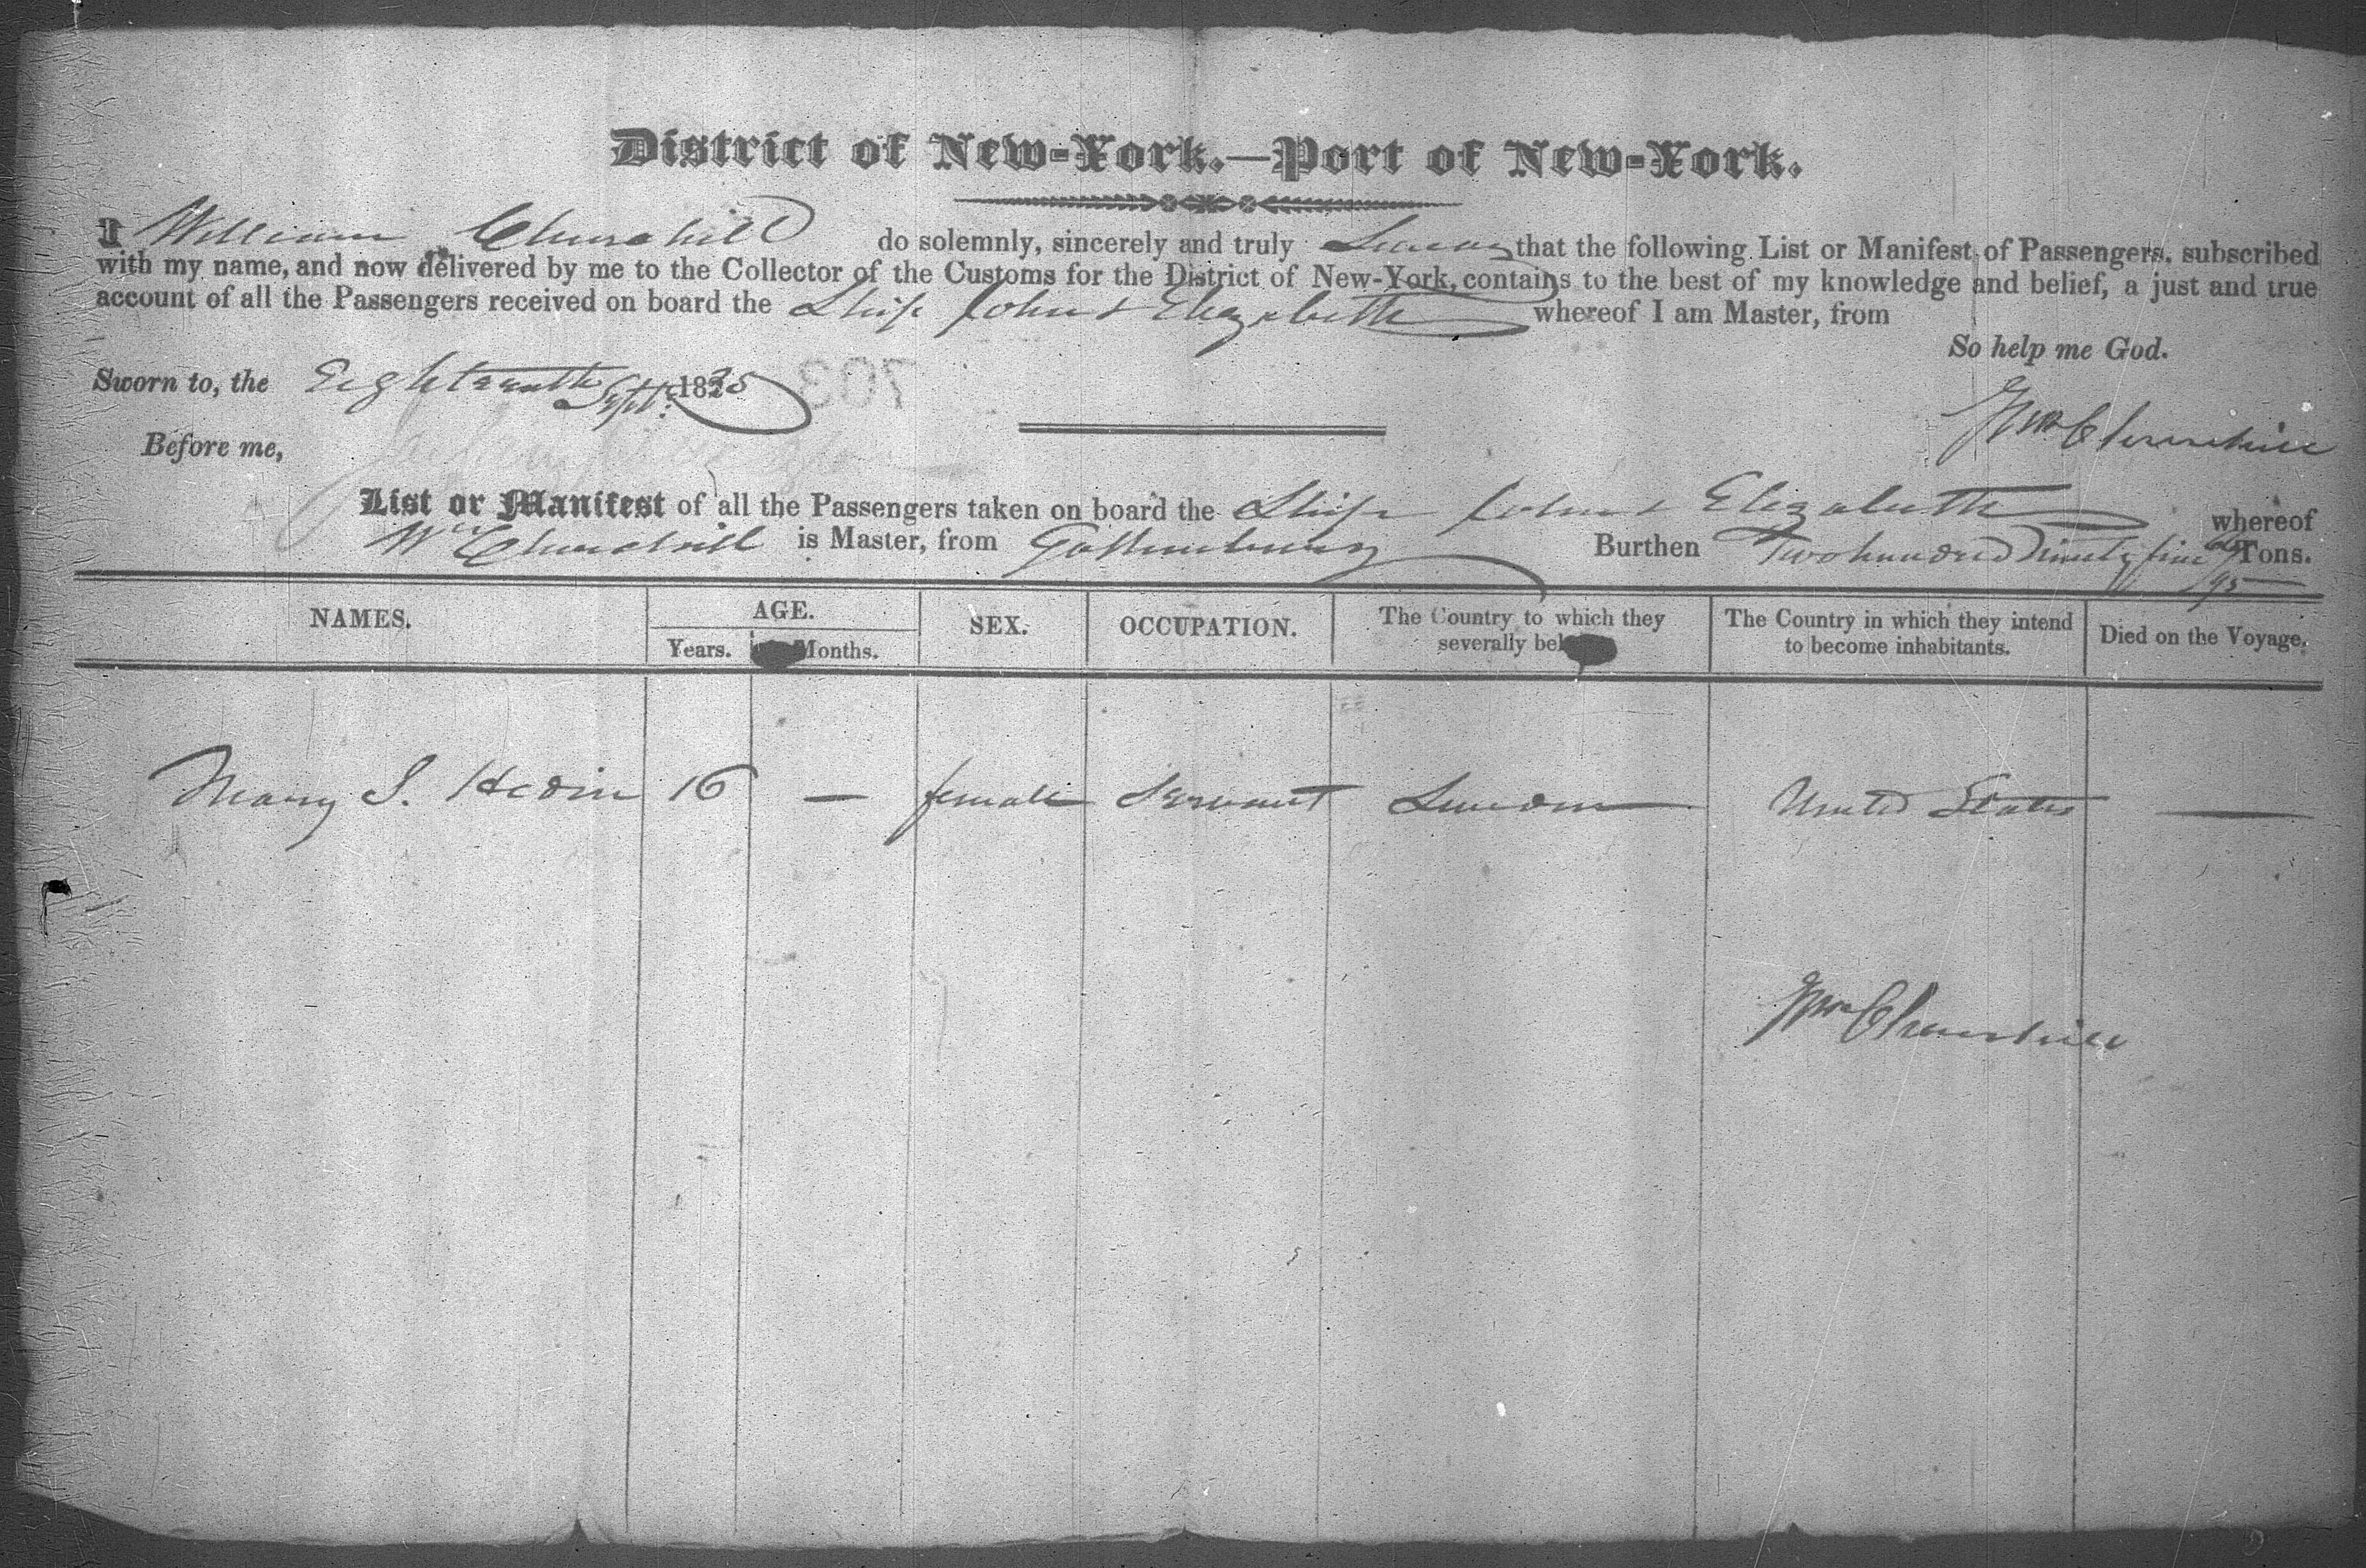 District of New-York.—Port of New-York.
I William Churchill do solemnly, sincerely and truly Swear that the following List or Manifest of Passengers, subscribed
with my name, and now delivered by me to the Collector of the Customs for the District of New-York, contains to the best of my knowledge and belief, a just and true
account of all the Passengers received on board the Ship John & Elizabeth whereof I am Master, from
So help me God.
Sworn to, the Eighteenth Sept. 1835
703
Wm Churchill
Before me,
List or Manifest of all the Passengers taken on board the Ship John & Elizabeth whereof
Wm Churchill is Master, from Gothenburg Burthen Two hundred Ninety five /95 Tons.
NAMES. AGE. SEX. OCCUPATION. The Country to which they severally bel The Country in which they intend to become inhabitants. Died on the Voyage.
Years. Months.
Mary S. Hedin 16 — female Servant Sweden United States —
Wm Churchill